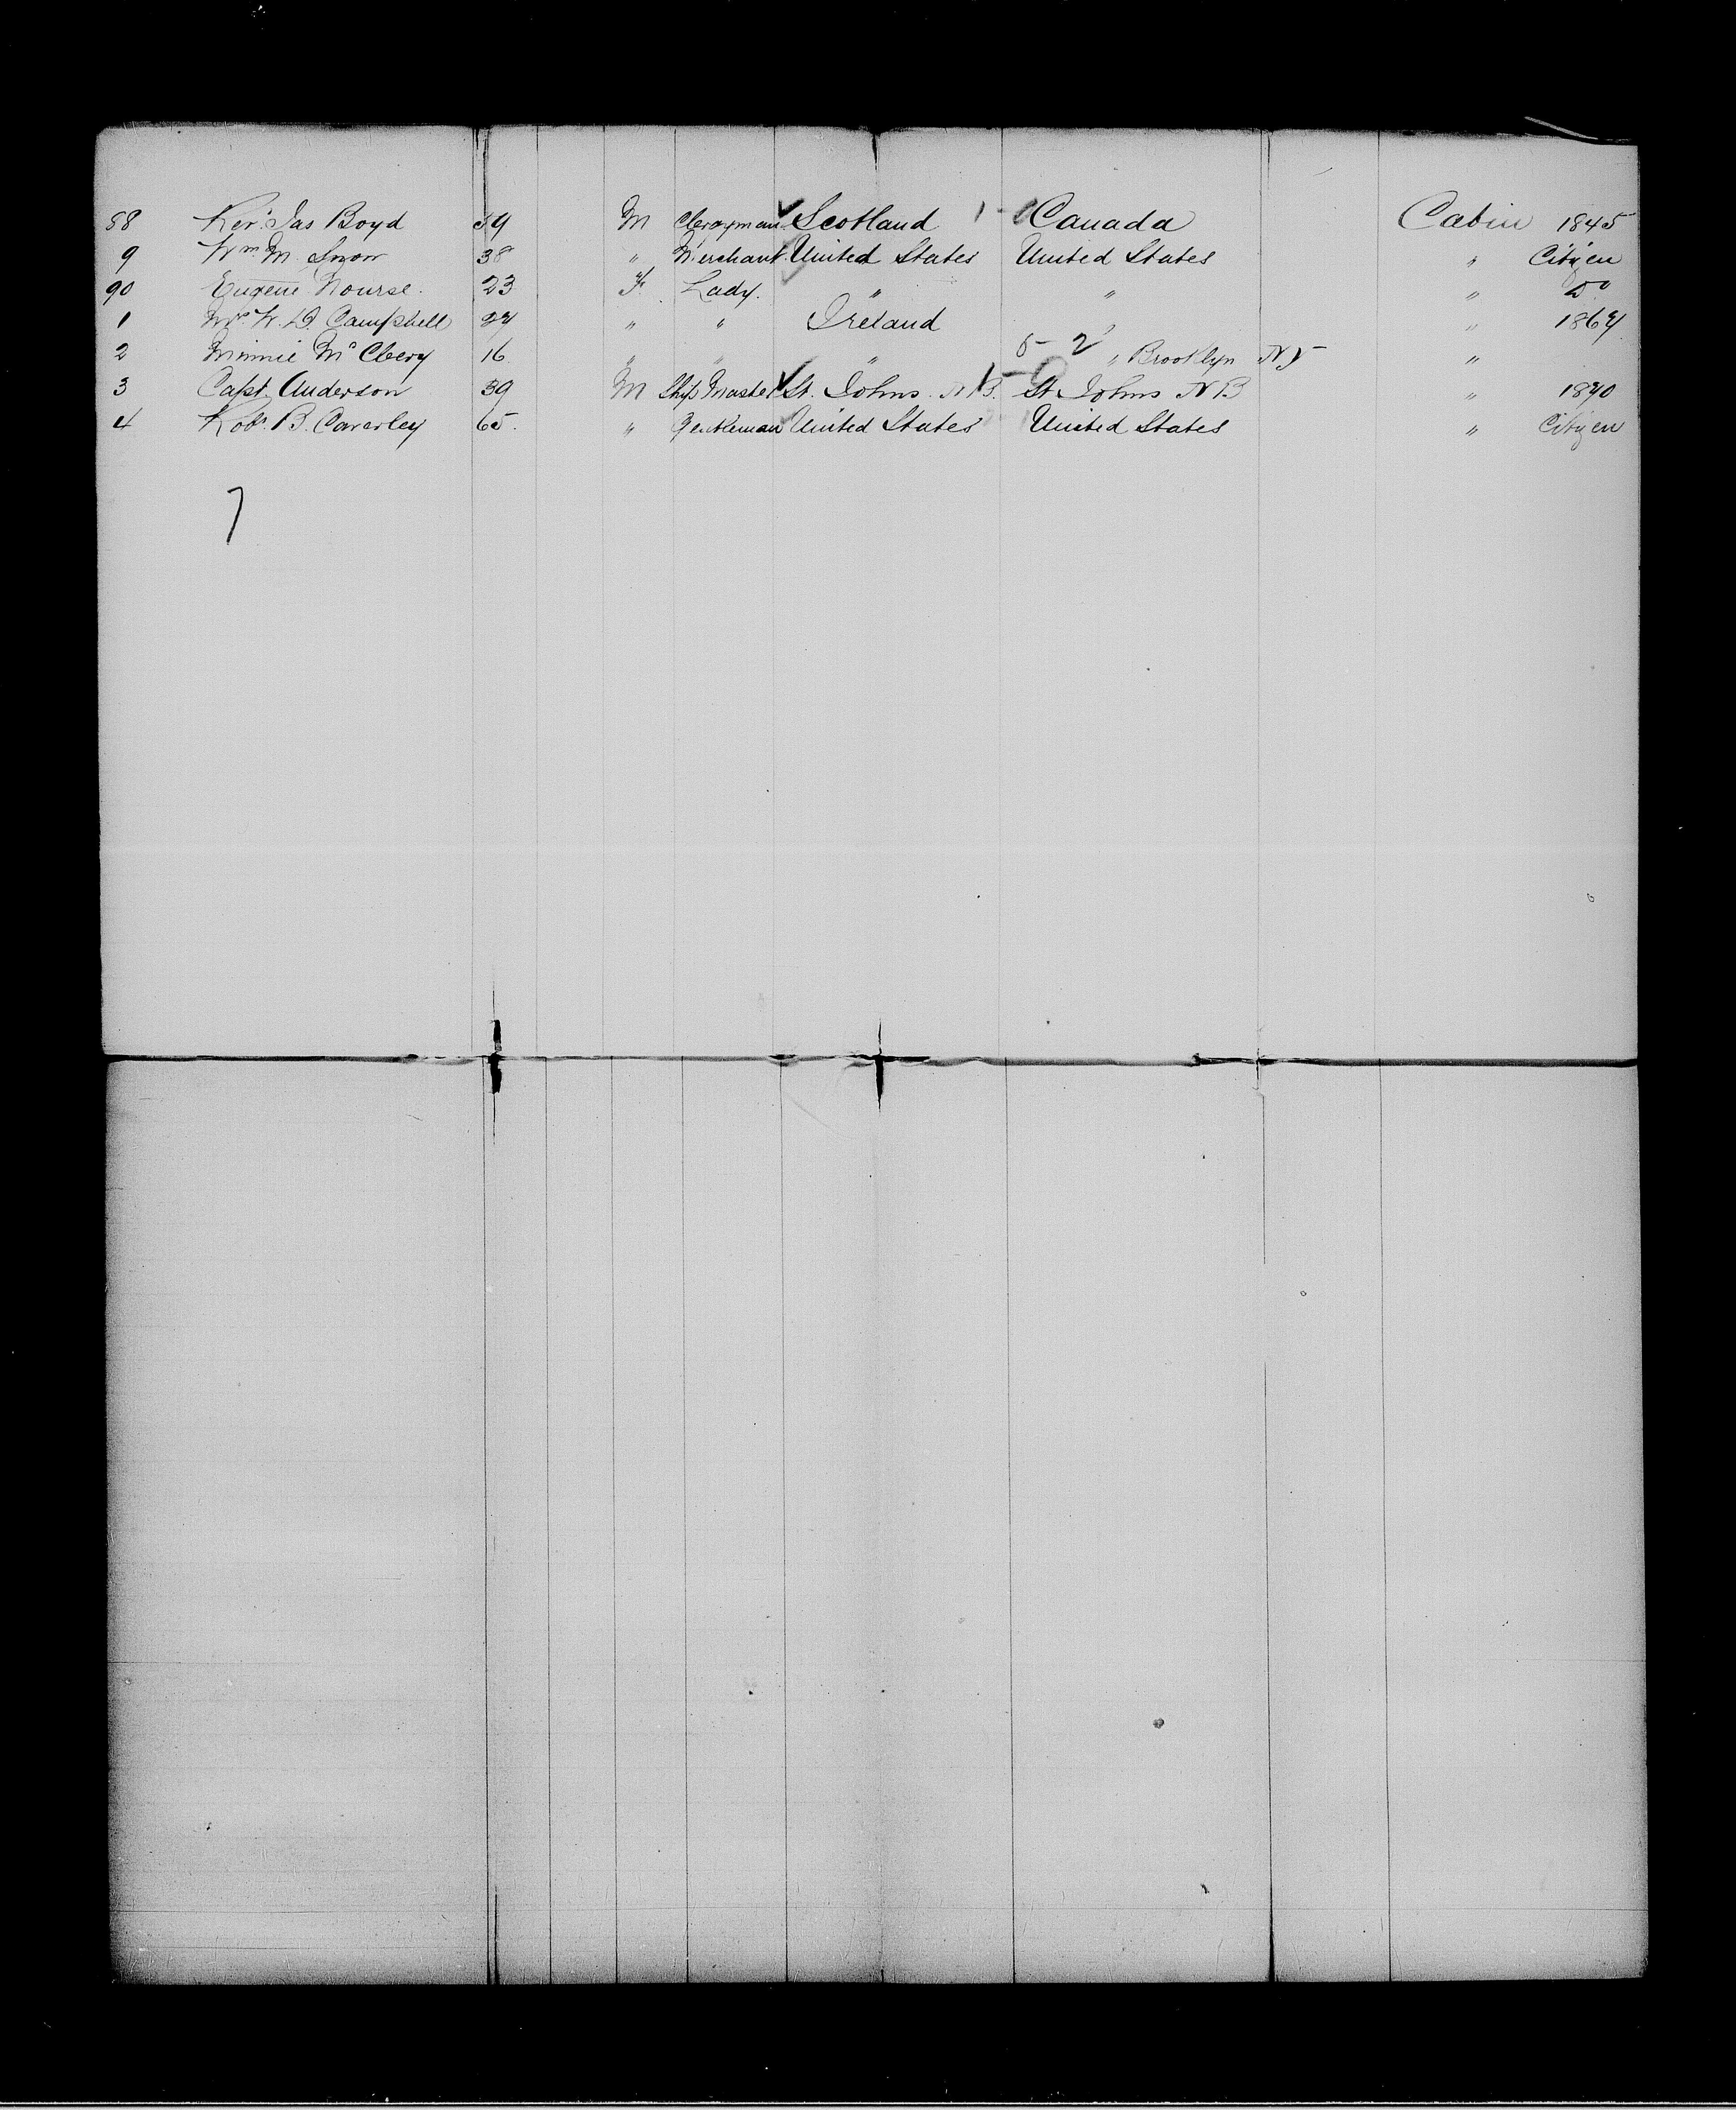 88 Revd Jas Boyd 59 M Clergyman Scotland 1 - 0 Canada Cabin 1845
9 Wm M. Snow 38 " Merchant United States United States " Citizen
90 Eugene Nourse. 23 F. Lady. " " " Do
1 Mrs W. D. Campbell 27 " " Ireland " 1867
2 Minnie McClery 16 " " " 5-2 " Brooklyn NY "
3 Capt. Anderson 39 M Ship Master St. Johns. N.B. 1-0 St Johns NB " 1870
4 Robt B. Caverley 65. " Gentleman United States United States " Citizen
7